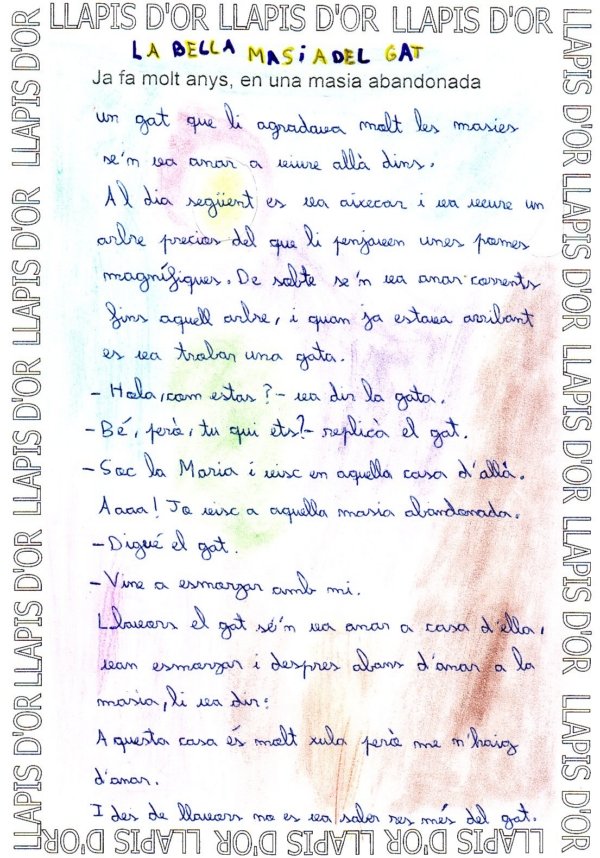 LLAPIS D'OR LLAPIS D'OR LLAPIS D'OR
LA BELLA MASIA DEL GAT
Ja fa molt anys, en una masia abandonada
un gat que li agradava molt les masies
se'n va anar a viure allà dins.
Al dia següent es va aixecar i va veure un
arbre precios del que li penjaven unes pomes
magnífiques. De sobte se'n va anar corrents
fins aquell arbre, i quan ja estava arribant
es va trobar una gata.
- Hola, com estas? - va dir la gata.
- Bé, però, tu qui ets? - replicà el gat.
- Soc la Maria i visc en aquella casa d'allà.
Aaaa! Jo visc a aquella masia abandonada.
- Digué el gat.
- Vine a esmorzar amb mi.
Llavors el gat se'n va anar a casa d'ella,
van esmorzar i despres abans d'anar a la
masia, li va dir:
Aquesta casa és molt xula però me n'haig
d'anar.
I des de llavors no es va saber res més del gat.
LLAPIS D'OR LLAPIS D'OR LLAPIS D'OR LLAPIS D'OR LLAPIS D'OR
LLAPIS D'OR LLAPIS D'OR LLAPIS D'OR LLAPIS D'OR LLAPIS D'OR
LLAPIS D'OR LLAPIS D'OR LLAPIS D'OR LLAPIS D'OR